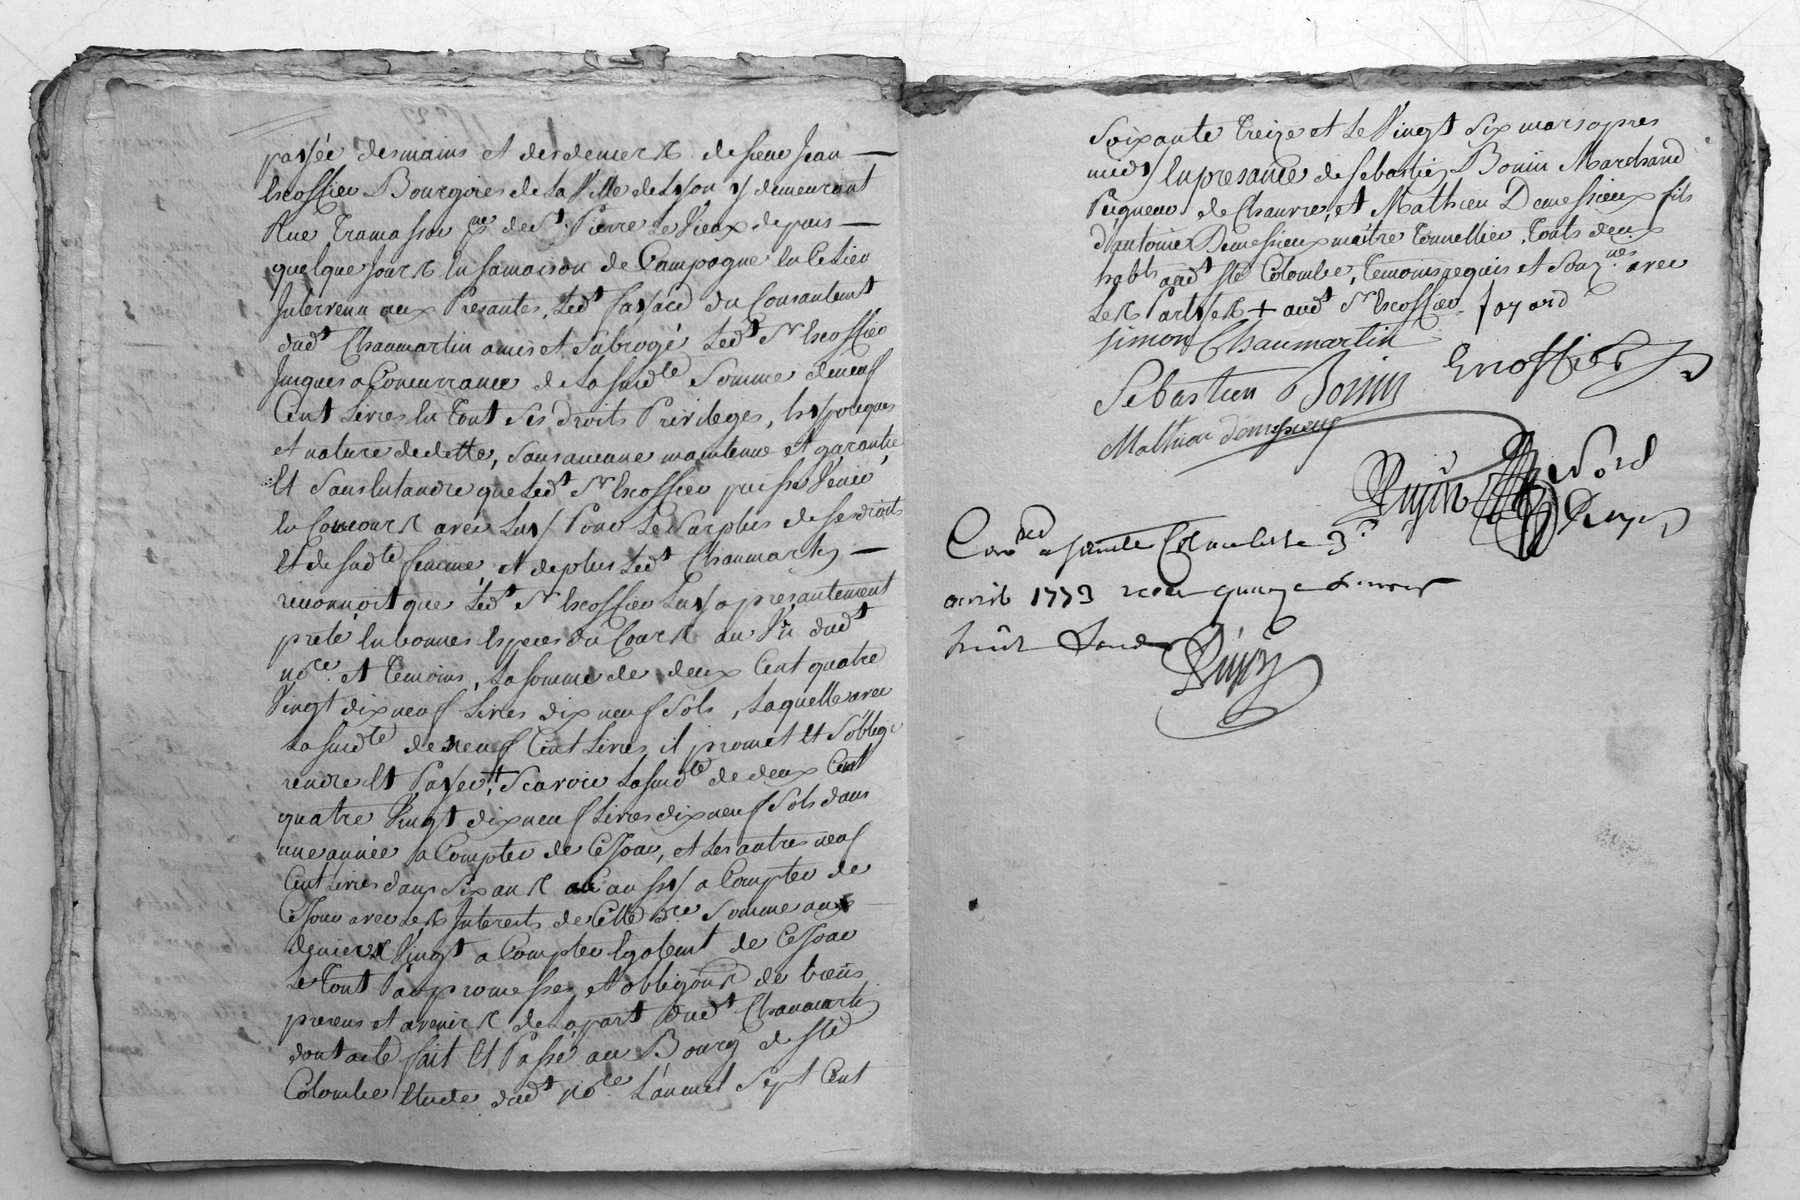 passée des mains et des deniers de sieur Jean
Escoffier Bourgois de la Ville de Lyon y demeurant
Rue Tramassac psse de St Pierre le Vieux depuis
quelque Jours En sa maison de Campagne En ce Lieu
Intervenu aux Presantes, Ledt du Consantemt
dudt Chaumartin a mis et subrogé Ledt Sr Escoffier
Jusques a Concurrance de la susdte Somme de neuf
Cent Livres En tout ses droits Privileges, hypoteques
et nature de dette, sans aucune maintenue et garantie
Et sans Entandre que Ledt Sr Escoffier puisse Venir
En Concours avec Luy Pour Le Surplus de ses droits
Et de sadte femme, et de plus Ledt Chaumartin
reconnoit que Ledt Sr Escoffier Luy a presantement
preté En bonnes Especes du Cours au Vu dudt
nore et Temoins, La somme de deux Cent quatre
Vingt dix neuf Livres dix neuf Sols, Laquelle avec
La susdte de neuf Cent Livres il promet Et s'oblige
rendre Et Payer, Scavoir La susdte de deux Cent
quatre Vingt dix neuf Livres dix neuf Sols dans
une année a Compter de Ce Jour, et Les autres neuf
Cent Livres dans Six ans aussy a Compter de
Ce Jour avec Les Interests de Cette dre Somme aux
deniers Vingt a Compter Egalemt de Ce Jour
Le Tout Par promesses et obligons de biens
presens et avenirs de La part dudt Chaumartin
dont acte fait Et Passé au Bourg de Ste
Colombe Etude dudt nore L'an mil Sept Cent
Soixante Treize et Le Vingt Six mars apres
midy En presance de Sebastien Bonin Marchand
Peigneur de Chanvre, et Mathieu Demessieux fils
d'Antoine Demessieux maitre Tonnellier, Touts deux
habts audt Ste Colombe, Temoins requis et Souznés avec
Les Parties + audt Sr Escoffier
Simon Chaumartin
Escoffier
Sebastien Bonin
Mathieu demessieux
Dupuy
Conlé a sainte Colombe le 3e
avril 1773 recu quinze livres
huit sous
Dupuy